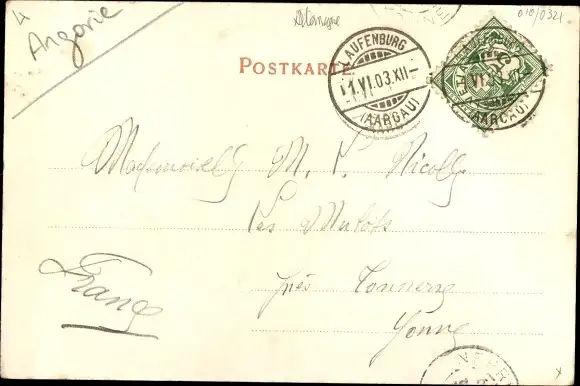 Argovie
Allemagne
010/0321
POSTKARTE
LAUFENBURG
1.VI.03.XII-
(AARGAU)
LAUFENBURG
(AARGAU)
Mademoiselle M. L. Nicolle
Les Mulots
près Tonnerre
Yonne
France